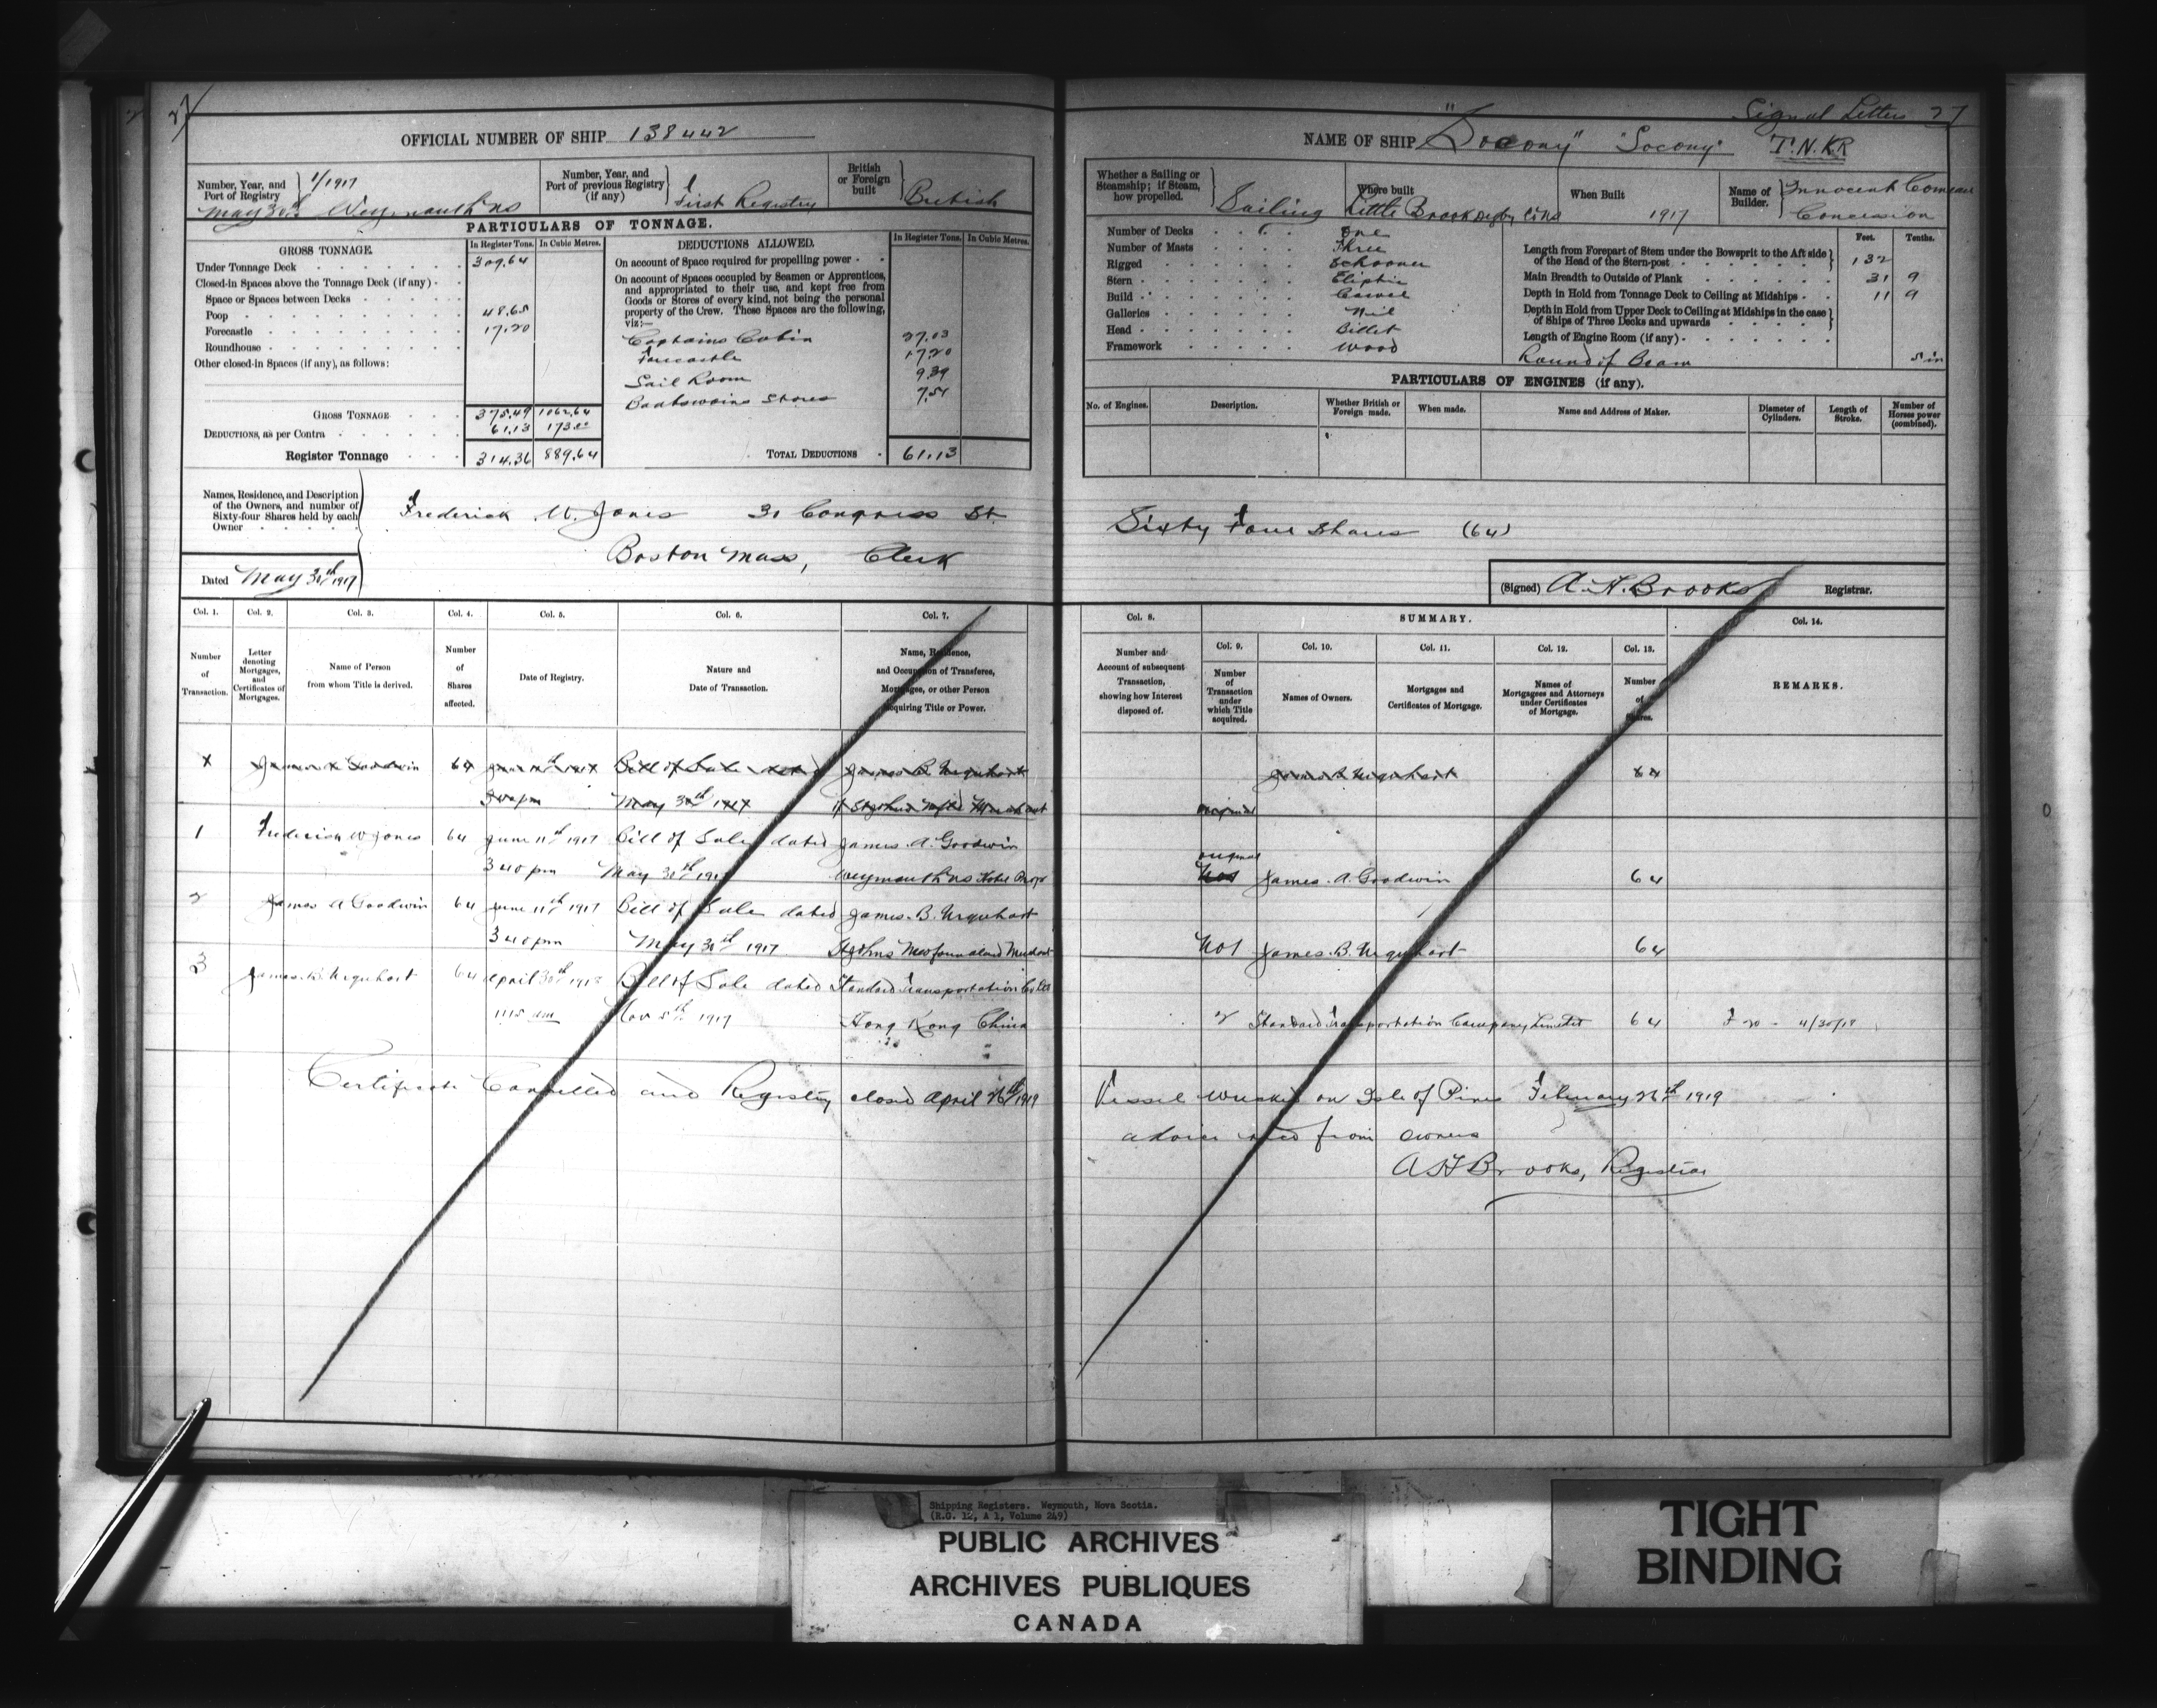 27
Signal Letters 27
OFFICIAL NUMBER OF SHIP 138442
NAME OF SHIP "Socony" "Socony" T.N.K.R
Number, Year, and Port of Registry 1/1917
May 30th Weymouth NS
Number, Year, and Port of previous Registry (if any) First Registry
British or Foreign built British
PARTICULARS OF TONNAGE.
GROSS TONNAGE. In Register Tons. In Cubic Metres.
Under Tonnage Deck 309.64
Closed-in Spaces above the Tonnage Deck (if any)
Space or Spaces between Decks
Poop 48.65
Forecastle 17.20
Roundhouse
Other closed-in Spaces (if any), as follows:
GROSS TONNAGE 375.49 1062.64
DEDUCTIONS, as per Contra 61.13 173.00
Register Tonnage 314.36 889.64
DEDUCTIONS ALLOWED. In Register Tons. In Cubic Metres.
On account of Space required for propelling power
On account of Spaces occupied by Seamen or Apprentices,
and appropriated to their use, and kept free from
Goods or Stores of every kind, not being the personal
property of the Crew. These Spaces are the following,
viz:—
Captains Cabin 27.03
Forecastle 17.20
Sail Room 9.39
Boatswains Stores 7.51
TOTAL DEDUCTIONS 61.13
Names, Residence, and Description
of the Owners, and number of
Sixty-four Shares held by each
Owner
Frederick W. Jones 31 Congress St.
Boston Mass, Clerk
Dated May 30th 1917
Whether a Sailing or
Steamship; if Steam,
how propelled.
Sailing
Where built
Little Brook Digby Co NS
When Built
1917
Name of Builder.
Innocent Comeau
Concession
Number of Decks One
Number of Masts Three
Rigged Schooner
Stern Eliptic
Build Carvel
Galleries Nil
Head Billet
Framework Wood
Feet. Tenths.
Length from Forepart of Stem under the Bowsprit to the Aft side
of the Head of the Stern-post 132
Main Breadth to Outside of Plank 31 9
Depth in Hold from Tonnage Deck to Ceiling at Midships 11 9
Depth in Hold from Upper Deck to Ceiling at Midships in the case
of Ships of Three Decks and upwards
Length of Engine Room (if any)
Round of Beam 5 in
PARTICULARS OF ENGINES (if any).
No. of Engines. Description. Whether British or Foreign made. When made. Name and Address of Maker. Diameter of Cylinders. Length of Stroke. Number of Horses power (combined).
Sixty Four Shares (64)
(Signed) A. H. Brooks Registrar.
Col. 1. Col. 2. Col. 3. Col. 4. Col. 5. Col. 6. Col. 7.
Number of Transaction.
Letter denoting Mortgages, and Certificates of Mortgages.
Name of Person from whom Title is derived.
Number of Shares affected.
Date of Registry.
Nature and Date of Transaction.
Name, Residence, and Occupation of Transferee, Mortgagee, or other Person Acquiring Title or Power.
Col. 8. SUMMARY. Col. 14.
Col. 9. Col. 10. Col. 11. Col. 12. Col. 13.
Number and Account of subsequent Transaction, showing how Interest disposed of.
Number of Transaction under which Title acquired.
Names of Owners.
Mortgages and Certificates of Mortgage.
Names of Mortgagees and Attorneys under Certificates of Mortgage.
Number of Shares.
REMARKS.
James A Goodwin 64 June 11th 1917 Bill of Sale dated James B Urquhart
3 40 pm May 30th 1917 St Johns Nfld Merchant
James B Urquhart 64
original
1 Frederick W Jones 64 June 11th 1917 Bill of Sale dated James A. Goodwin
3 40 pm May 30th 1917 Weymouth NS Hotel Propr
original
No1 James A. Goodwin 64
2 James A Goodwin 64 June 11th 1917 Bill of Sale dated James B. Urquhart
3 40 pm May 30th 1917 St Johns Newfoundland Merchant
No1 James B. Urquhart 64
3 James B. Urquhart 64 April 30th 1918 Bill of Sale dated Standard Transportation Co Ltd
11 15 am Nov 5th 1917 Hong Kong China
2 Standard Transportation Company Limited 64 4/30/18
Certificate Cancelled and Registry closed April 26th 1919
Vessel wrecked on Isle of Pines February 26th 1919
advice from owners
A H Brooks, Registrar
Shipping Registers. Weymouth, Nova Scotia.
(R.G. 12, A 1, Volume 249)
PUBLIC ARCHIVES
ARCHIVES PUBLIQUES
CANADA
TIGHT
BINDING